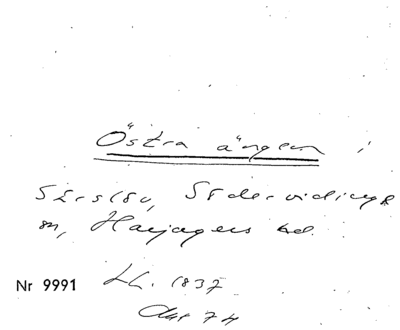 Östra ängen i
Särslöv, Södervidinge
sn, Harjagers hd.
Nr 9991 1837
Akt 74